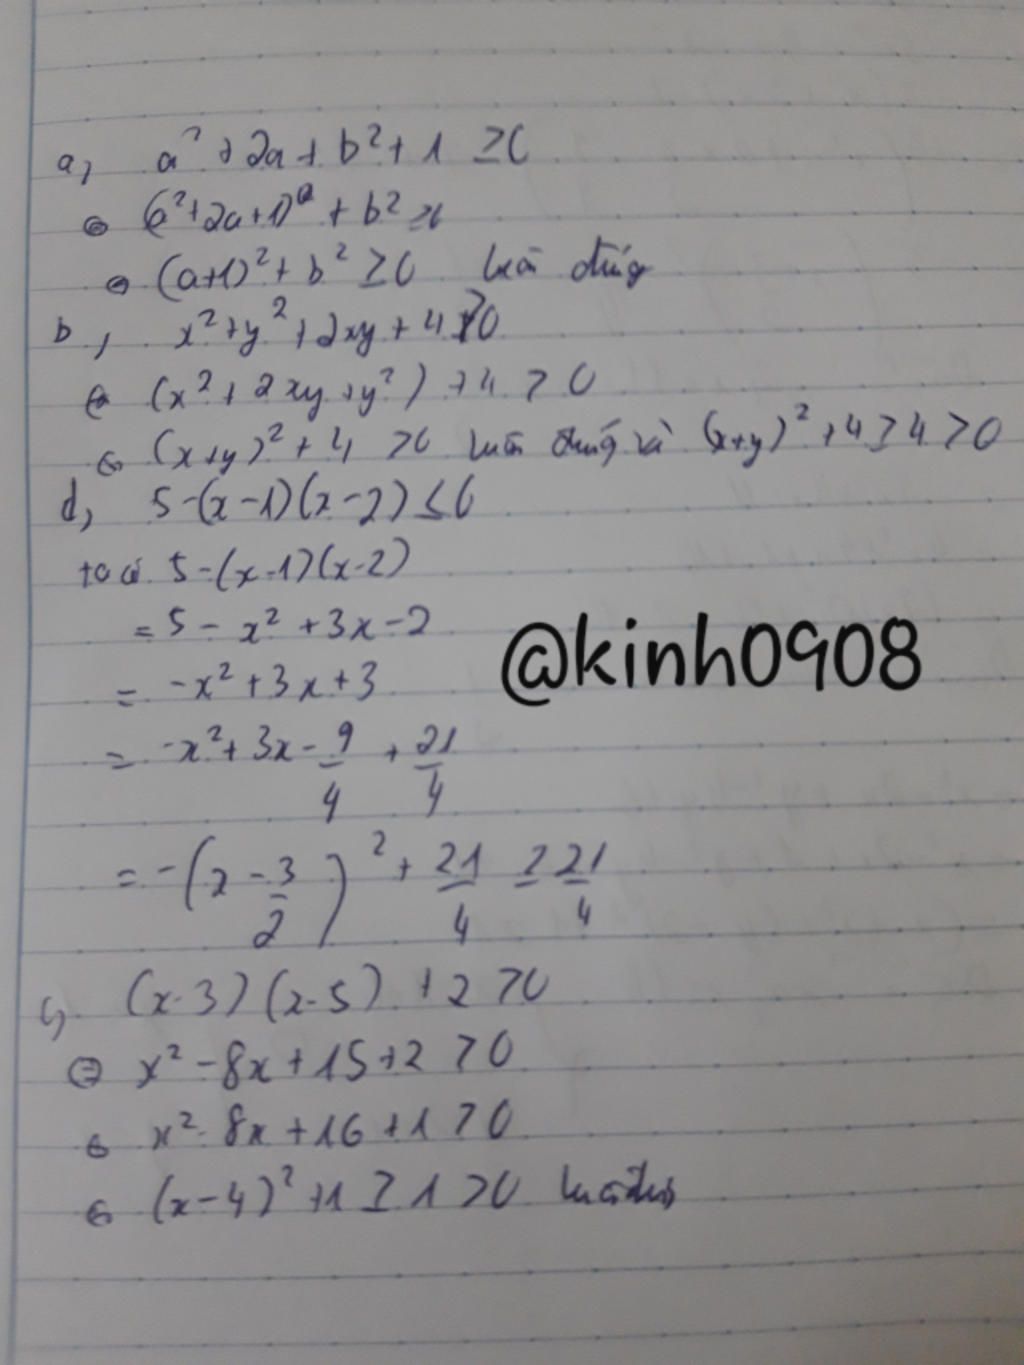 a, a² + 2a + b² + 1 ≥ 0
⇔ (a² + 2a + 1) + b² ≥ 0
⇔ (a+1)² + b² ≥ 0 luôn đúng
b, x² + y² + 2xy + 4 > 0
⇔ (x² + 2xy + y²) + 4 > 0
⇔ (x+y)² + 4 > 0 luôn đúng vì (x+y)² + 4 ≥ 4 > 0
d, 5 - (x-1)(x-2) ≤ 0
ta có 5 - (x-1)(x-2)
= 5 - x² + 3x - 2
@kinh0908
= -x² + 3x + 3
= -x² + 3x - 9/4 + 21/4
= -(x - 3/2)² + 21/4 ≥ 21/4
c, (x-3)(x-5) + 2 > 0
⇔ x² - 8x + 15 + 2 > 0
⇔ x² - 8x + 16 + 1 > 0
⇔ (x-4)² + 1 ≥ 1 > 0 luôn đúng